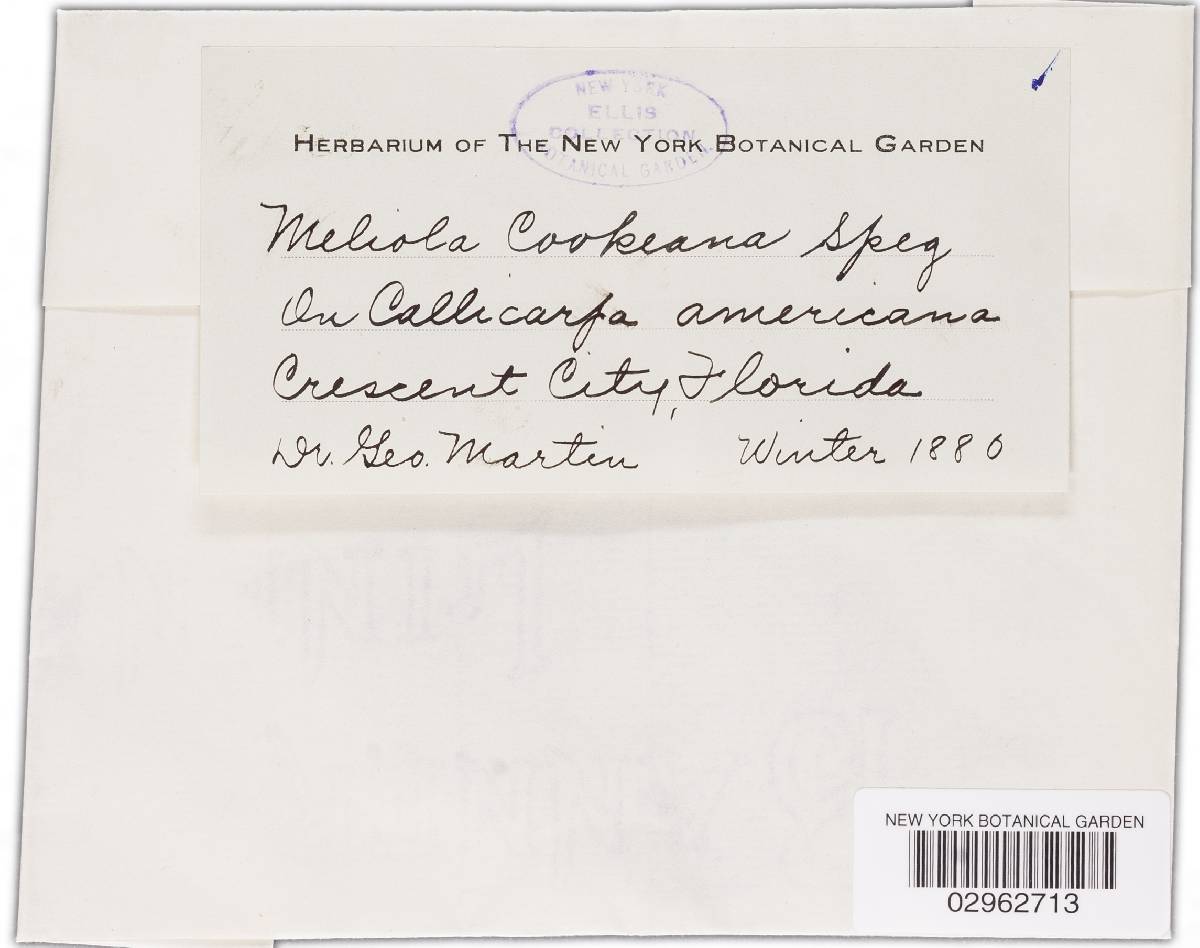 NEW YORK
ELLIS
COLLECTION
BOTANICAL GARDEN
HERBARIUM OF THE NEW YORK BOTANICAL GARDEN
Meliola Cookeana Speg
On Callicarpa americana
Crescent City, Florida
Dr. Geo. Martin Winter 1880
NEW YORK BOTANICAL GARDEN
02962713